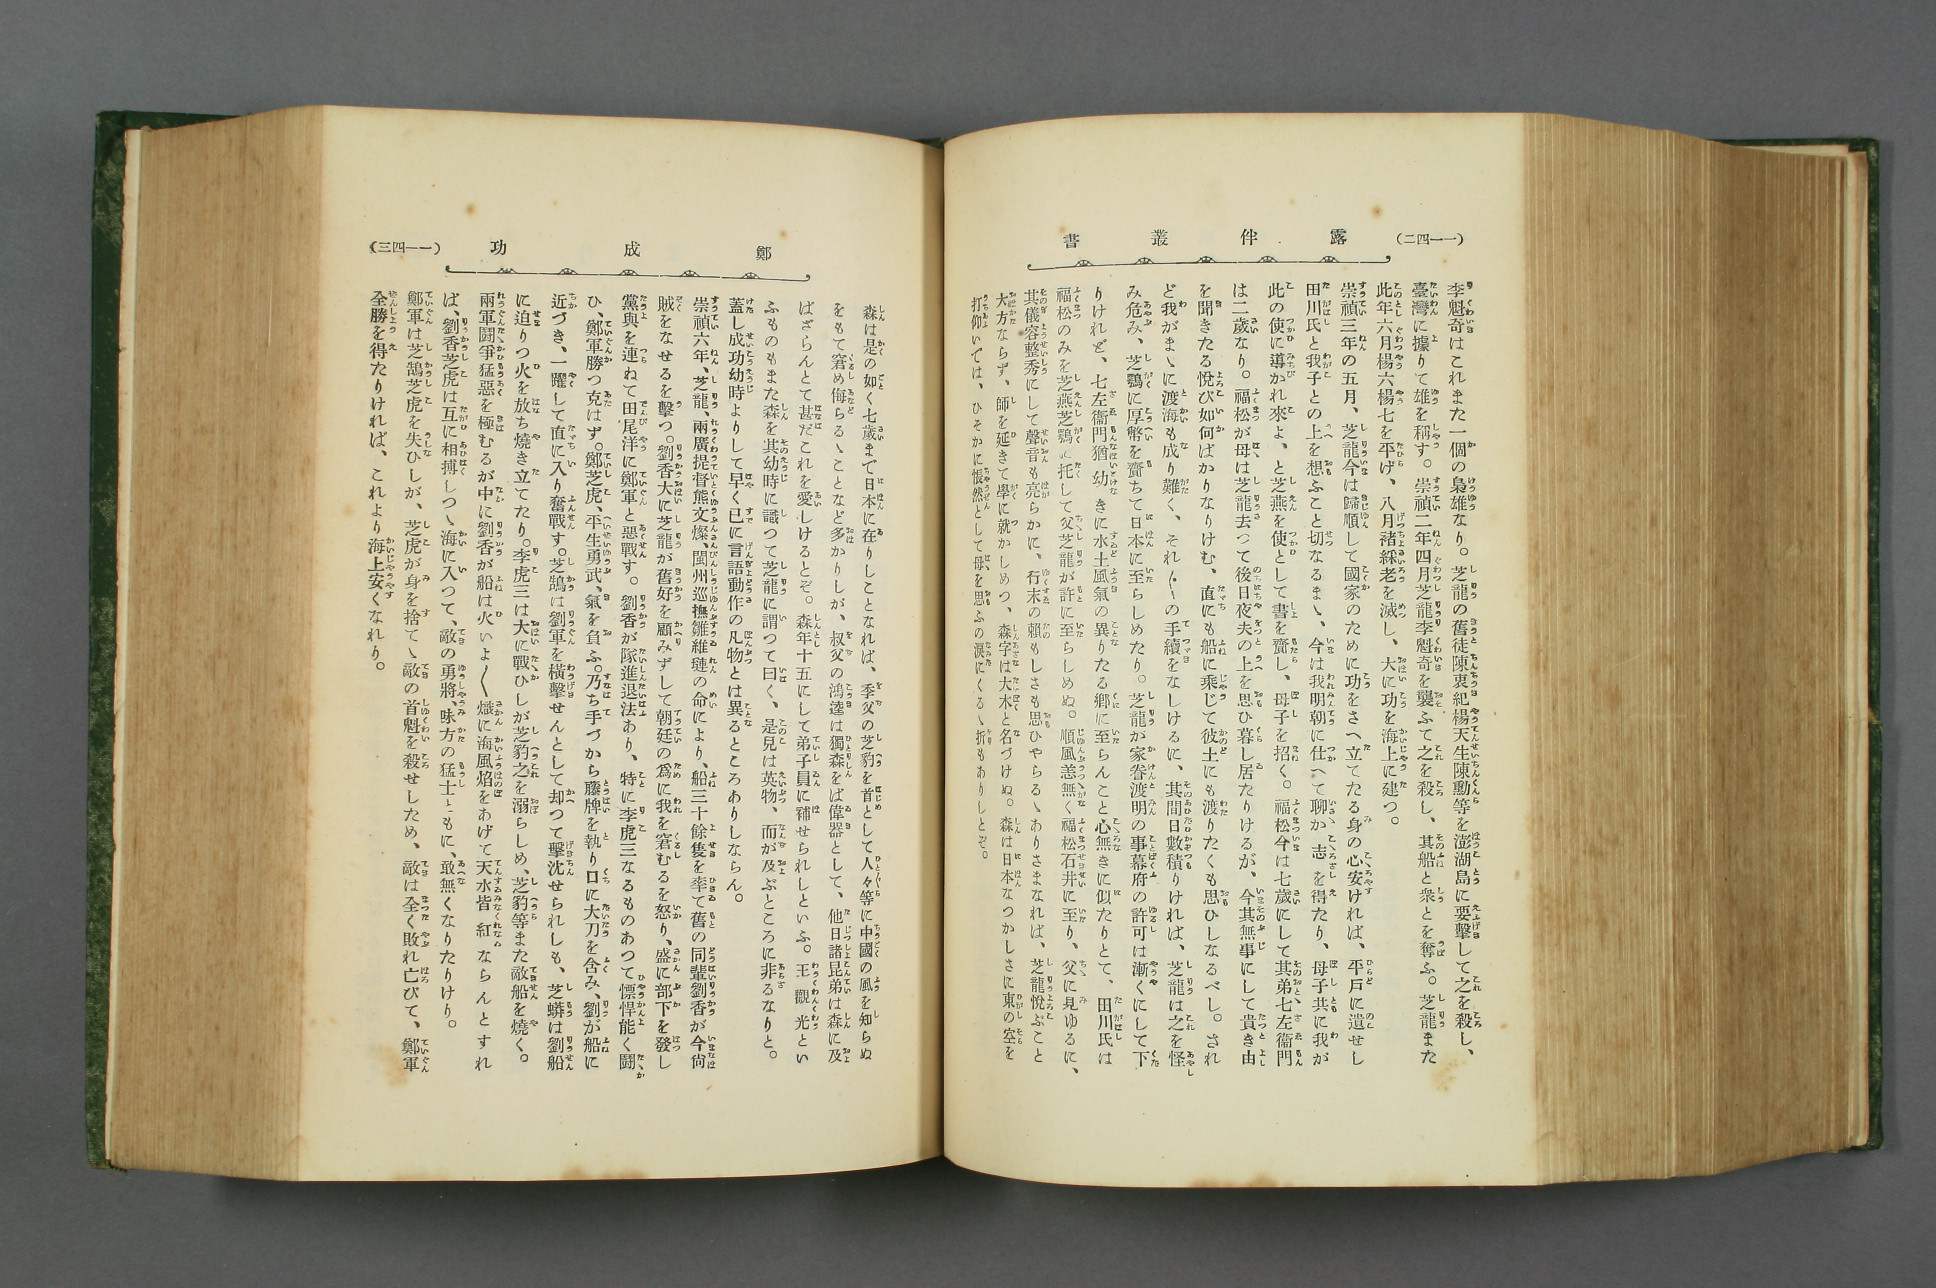 (一一四二)
露伴叢書
李魁奇はこれまた一個の梟雄なり。芝龍の舊徒陳衷紀楊天生陳勳等を澎湖島に要擊して之を殺し、
臺灣に據りて雄を稱す。崇禎二年四月芝龍李魁奇を襲ふて之を殺し、其船と衆とを奪ふ。芝龍また
此年六月楊六楊七を平げ、八月褚綵老を滅し、大に功を海上に建つ。
崇禎三年の五月、芝龍今は歸順して國家のために功をさへ立てたる身の心安ければ、平戶に遺せし
田川氏と我子との上を想ふこと切なるまゝ、今は我明朝に仕へて聊か志を得たり、母子共に我が
此の使に導かれ來よ、と芝燕を使として書を齎し、母子を招く。福松今は七歲にして其弟七左衞門
は二歲なり。福松が母は芝龍去つて後日夜夫の上を思ひ暮し居たりけるが、今其無事にして貴き由
を聞きたる悅び如何ばかりなりけむ、直にも船に乘じて彼土にも渡りたくも思ひしなるべし。され
ど我がまゝに渡海も成り難く、それ〳〵の手續をなしけるに、其間日數積りければ、芝龍は之を怪
み危み、芝鶚に厚幣を齎ちて日本に至らしめたり。芝龍が家眷渡明の事幕府の許可は漸くにして下
りけれど、七左衞門猶幼きに水土風氣の異りたる鄕に至らんこと心無きに似たりとて、田川氏は
福松のみを芝燕芝鶚に托して父芝龍が許に至らしめぬ。順風恙無く福松石井に至り、父に見ゆるに、
其儀容整秀にして聲音も亮らかに、行末の賴もしさも思ひやらるゝありさまなれば、芝龍悅ぶこと
大方ならず、師を延きて學に就かしめつ、森字は大木と名づけぬ。森は日本なつかしさに東の空を
打仰いては、ひそかに悵然として母を思ふの淚にくるゝ折もありしとぞ。
鄭成功
(一一四三)
森は是の如く七歲まで日本に在りしことなれば、季父の芝豹を首として人々等に中國の風を知らぬ
をもて窘め侮らるゝことなど多かりしが、叔父の鴻逵は獨森をば偉器として、他日諸昆弟は森に及
ばざらんとて甚だこれを愛しけるとぞ。森年十五にして弟子員に補せられしといふ。王觀光とい
ふものもまた森を其幼時に識つて芝龍に謂つて曰く、是兒は英物、而が及ぶところに非るなりと。
蓋し成功幼時よりして早く已に言語動作の凡物とは異るところありしならん。
崇禎六年、芝龍、兩廣提督熊文燦、閩州巡撫鄒維璉の命により、船三十餘隻を率て舊の同輩劉香が今尙
賊をなせるを擊つ。劉香大に芝龍が舊好を顧みずして朝廷の爲に我を窘むるを怒り、盛に部下を發し
黨與を連ねて田尾洋に鄭軍と惡戰す。劉香が隊進退法あり、特に李虎三なるものあつて慓悍能く鬪
ひ、鄭軍勝つ克はず。鄭芝虎、平生勇武、氣を負ふ。乃ち手づから籐牌を執り口に大刀を含み、劉が船に
近づき、一躍して直に入り奮戰す。芝鵠は劉軍を橫擊せんとして却つて擊沈せられしも、芝蟒は劉船
に迫りつ火を放ち燒き立てたり。李虎三は大に戰ひしが芝豹之を溺らしめ、芝豹等また敵船を燒く。
兩軍鬪爭猛惡を極むるが中に劉香が船は火いよ〳〵熾に海風焰をあげて天水皆紅ならんとすれ
ば、劉香芝虎は互に相搏しつゝ海に入つて、敵の勇將、味方の猛士ともに、敢無くなりたりけり。
鄭軍は芝鵠芝虎を失ひしが、芝虎が身を捨てゝ敵の首魁を殺せしため、敵は全く敗れ亡びて、鄭軍
全勝を得たりければ、これより海上安くなれり。